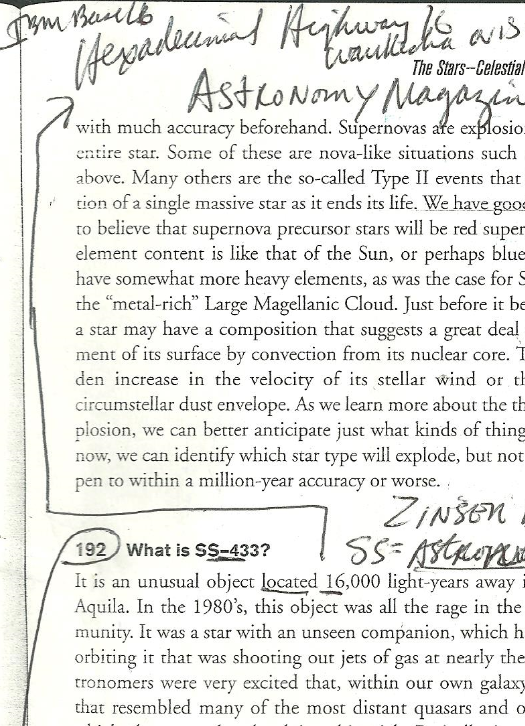 IBM Base 16
Hexadecimal Highway 16
Waukesha WIS
The Stars—Celestial
ASTRONOMY Magazin
with much accuracy beforehand. Supernovas are explosio
entire star. Some of these are nova-like situations such
above. Many others are the so-called Type II events that
tion of a single massive star as it ends its life. We have good
to believe that supernova precursor stars will be red super
element content is like that of the Sun, or perhaps blue
have somewhat more heavy elements, as was the case for S
the “metal-rich” Large Magellanic Cloud. Just before it be
a star may have a composition that suggests a great deal
ment of its surface by convection from its nuclear core. T
den increase in the velocity of its stellar wind or th
circumstellar dust envelope. As we learn more about the th
plosion, we can better anticipate just what kinds of thing
now, we can identify which star type will explode, but not
pen to within a million-year accuracy or worse.
ZINSER
SS=
192 What is SS-433?
It is an unusual object located 16,000 light-years away i
Aquila. In the 1980’s, this object was all the rage in the
munity. It was a star with an unseen companion, which h
orbiting it that was shooting out jets of gas at nearly the
tronomers were very excited that, within our own galaxy
that resembled many of the most distant quasars and o